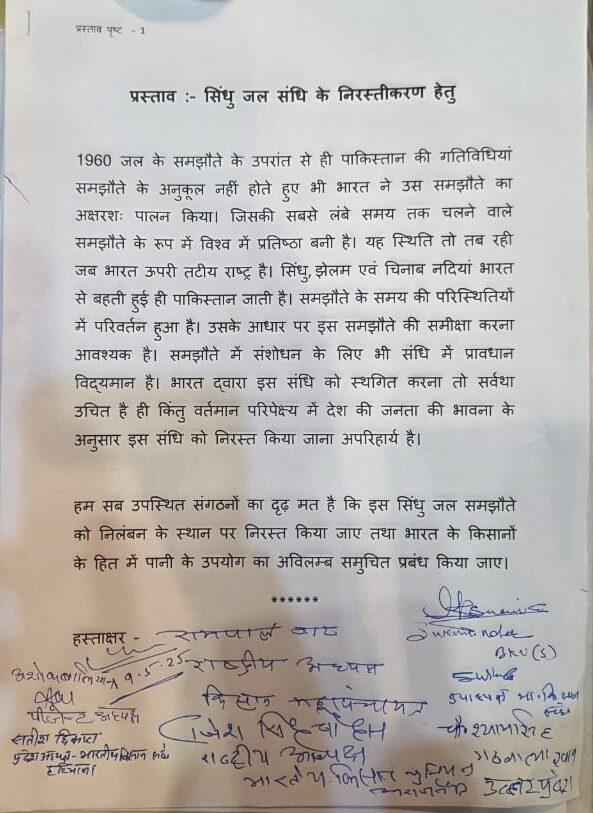 प्रस्ताव पृष्ट - 1
प्रस्ताव :- सिंधु जल संधि के निरस्तीकरण हेतु
1960 जल के समझौते के उपरांत से ही पाकिस्तान की गतिविधियां
समझौते के अनुकूल नहीं होते हुए भी भारत ने उस समझौते का
अक्षरशः पालन किया। जिसकी सबसे लंबे समय तक चलने वाले
समझौते के रूप में विश्व में प्रतिष्ठा बनी है। यह स्थिति तो तब रही
जब भारत ऊपरी तटीय राष्ट्र है। सिंधु, झेलम एवं चिनाब नदियां भारत
से बहती हुई ही पाकिस्तान जाती है। समझौते के समय की परिस्थितियों
में परिवर्तन हुआ है। उसके आधार पर इस समझौते की समीक्षा करना
आवश्यक है। समझौते में संशोधन के लिए भी संधि में प्रावधान
विद्यमान है। भारत द्वारा इस संधि को स्थगित करना तो सर्वथा
उचित है ही किंतु वर्तमान परिपेक्ष्य में देश की जनता की भावना के
अनुसार इस संधि को निरस्त किया जाना अपरिहार्य है।
हम सब उपस्थित संगठनों का दृढ़ मत है कि इस सिंधु जल समझौते
को निलंबन के स्थान पर निरस्त किया जाए तथा भारत के किसानों
के हित में पानी के उपयोग का अविलम्ब समुचित प्रबंध किया जाए।
******
हस्ताक्षर - रामपाल जाट
BKU (S)
9.5.25 राष्ट्रीय अध्यक्ष
किसान महापंचायत
अध्यक्ष
राष्ट्रीय अध्यक्ष
हरियाणा
भारतीय किसान यूनियन
उत्तर प्रदेश